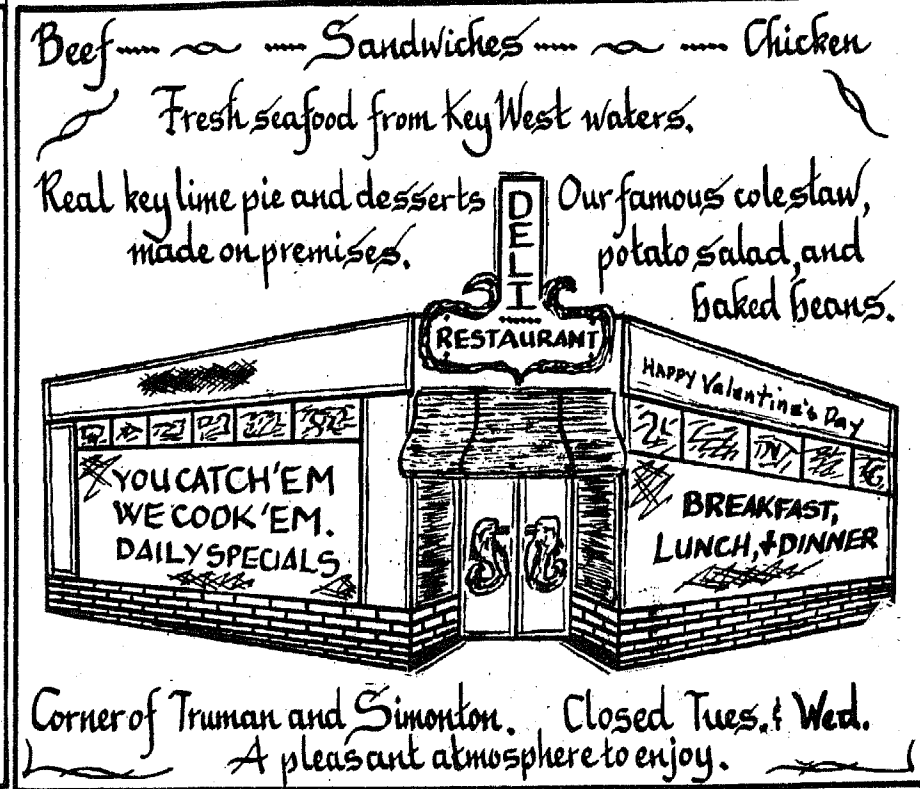 Beef Sandwiches Chicken
Fresh seafood from Key West waters.
Real key lime pie and desserts
made on premises.
Our famous coleslaw,
potato salad, and
baked beans.
DELI
RESTAURANT
HAPPY Valentine's Day
YOU CATCH 'EM
WE COOK 'EM.
DAILY SPECIALS
BREAKFAST,
LUNCH, + DINNER
Corner of Truman and Simonton. Closed Tues. & Wed.
A pleasant atmosphere to enjoy.